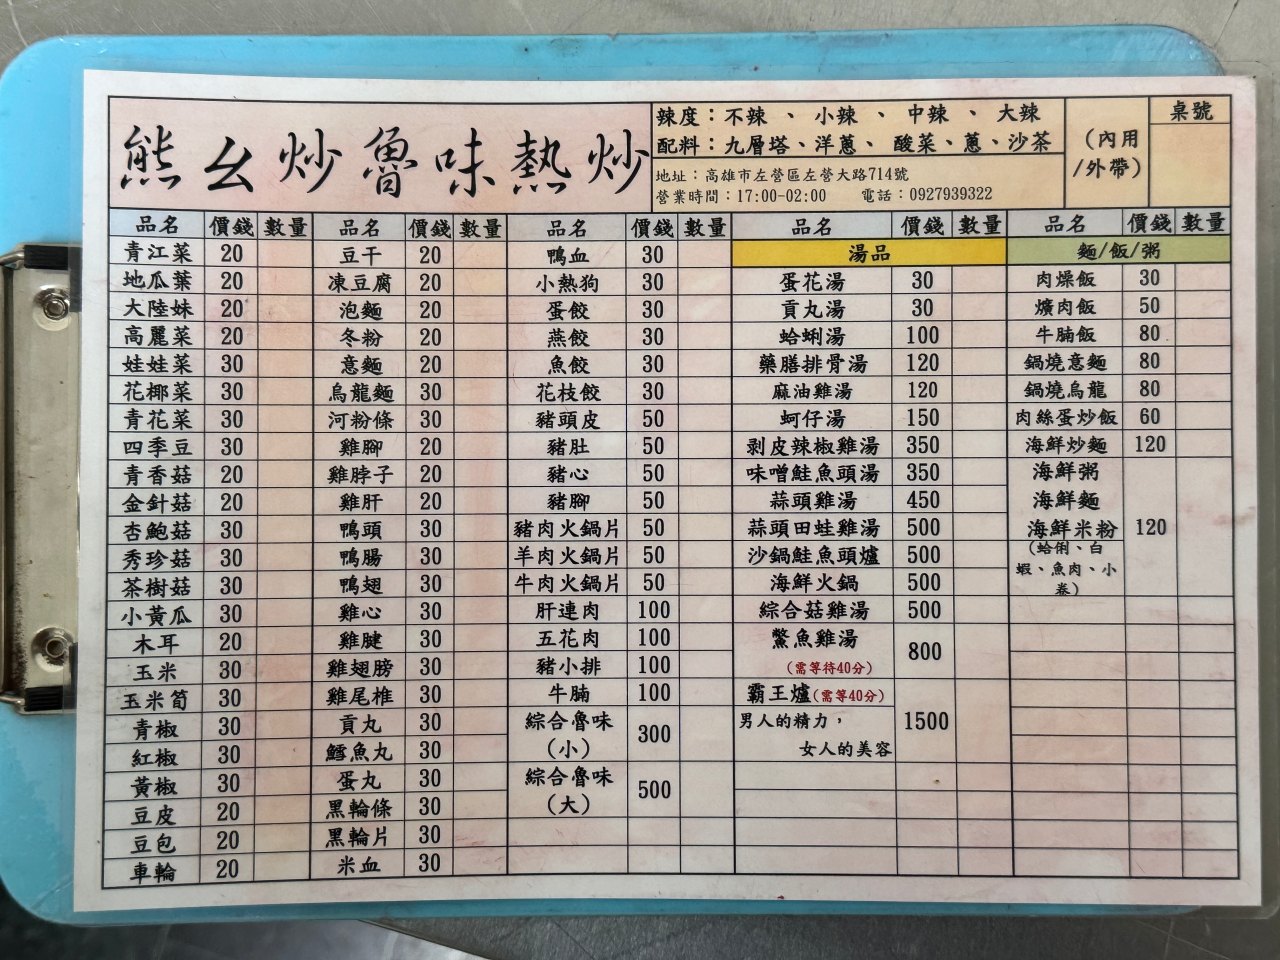 熊么炒魯味熱炒
辣度：不辣、小辣、中辣、大辣
配料：九層塔、洋蔥、酸菜、蔥、沙茶
地址：高雄市左營區左營大路714號
營業時間：17:00-02:00 電話：0927939322
（內用
/外帶）
桌號
品名 價錢 數量 品名 價錢 數量 品名 價錢 數量 品名 價錢 數量 品名 價錢 數量
青江菜 20
地瓜葉 20
大陸妹 20
高麗菜 20
娃娃菜 30
花椰菜 30
青花菜 30
四季豆 30
青香菇 20
金針菇 20
杏鮑菇 30
秀珍菇 30
茶樹菇 30
小黃瓜 30
木耳 20
玉米 30
玉米筍 30
青椒 30
紅椒 30
黃椒 30
豆皮 20
豆包 20
車輪 20
豆干 20
凍豆腐 20
泡麵 20
冬粉 20
意麵 20
烏龍麵 30
河粉條 30
雞腳 20
雞脖子 20
雞肝 20
鴨頭 30
鴨腸 30
鴨翅 30
雞心 30
雞腱 30
雞翅膀 30
雞尾椎 30
貢丸 30
鱈魚丸 30
蛋丸 30
黑輪條 30
黑輪片 30
米血 30
鴨血 30
小熱狗 30
蛋餃 30
燕餃 30
魚餃 30
花枝餃 30
豬頭皮 50
豬肚 50
豬心 50
豬腳 50
豬肉火鍋片 50
羊肉火鍋片 50
牛肉火鍋片 50
肝連肉 100
五花肉 100
豬小排 100
牛腩 100
綜合魯味
（小） 300
綜合魯味
（大） 500
湯品
蛋花湯 30
貢丸湯 30
蛤蜊湯 100
藥膳排骨湯 120
麻油雞湯 120
蚵仔湯 150
剥皮辣椒雞湯 350
味噌鮭魚頭湯 350
蒜頭雞湯 450
蒜頭田蛙雞湯 500
沙鍋鮭魚頭爐 500
海鮮火鍋 500
綜合菇雞湯 500
鱉魚雞湯 800
（需等待40分）
霸王爐（需等40分） 1500
男人的精力，
女人的美容
麵/飯/粥
肉燥飯 30
爌肉飯 50
牛腩飯 80
鍋燒意麵 80
鍋燒烏龍 80
肉絲蛋炒飯 60
海鮮炒麵 120
海鮮粥
海鮮麵
海鮮米粉 120
（蛤俐、白
蝦、魚肉、小
卷）